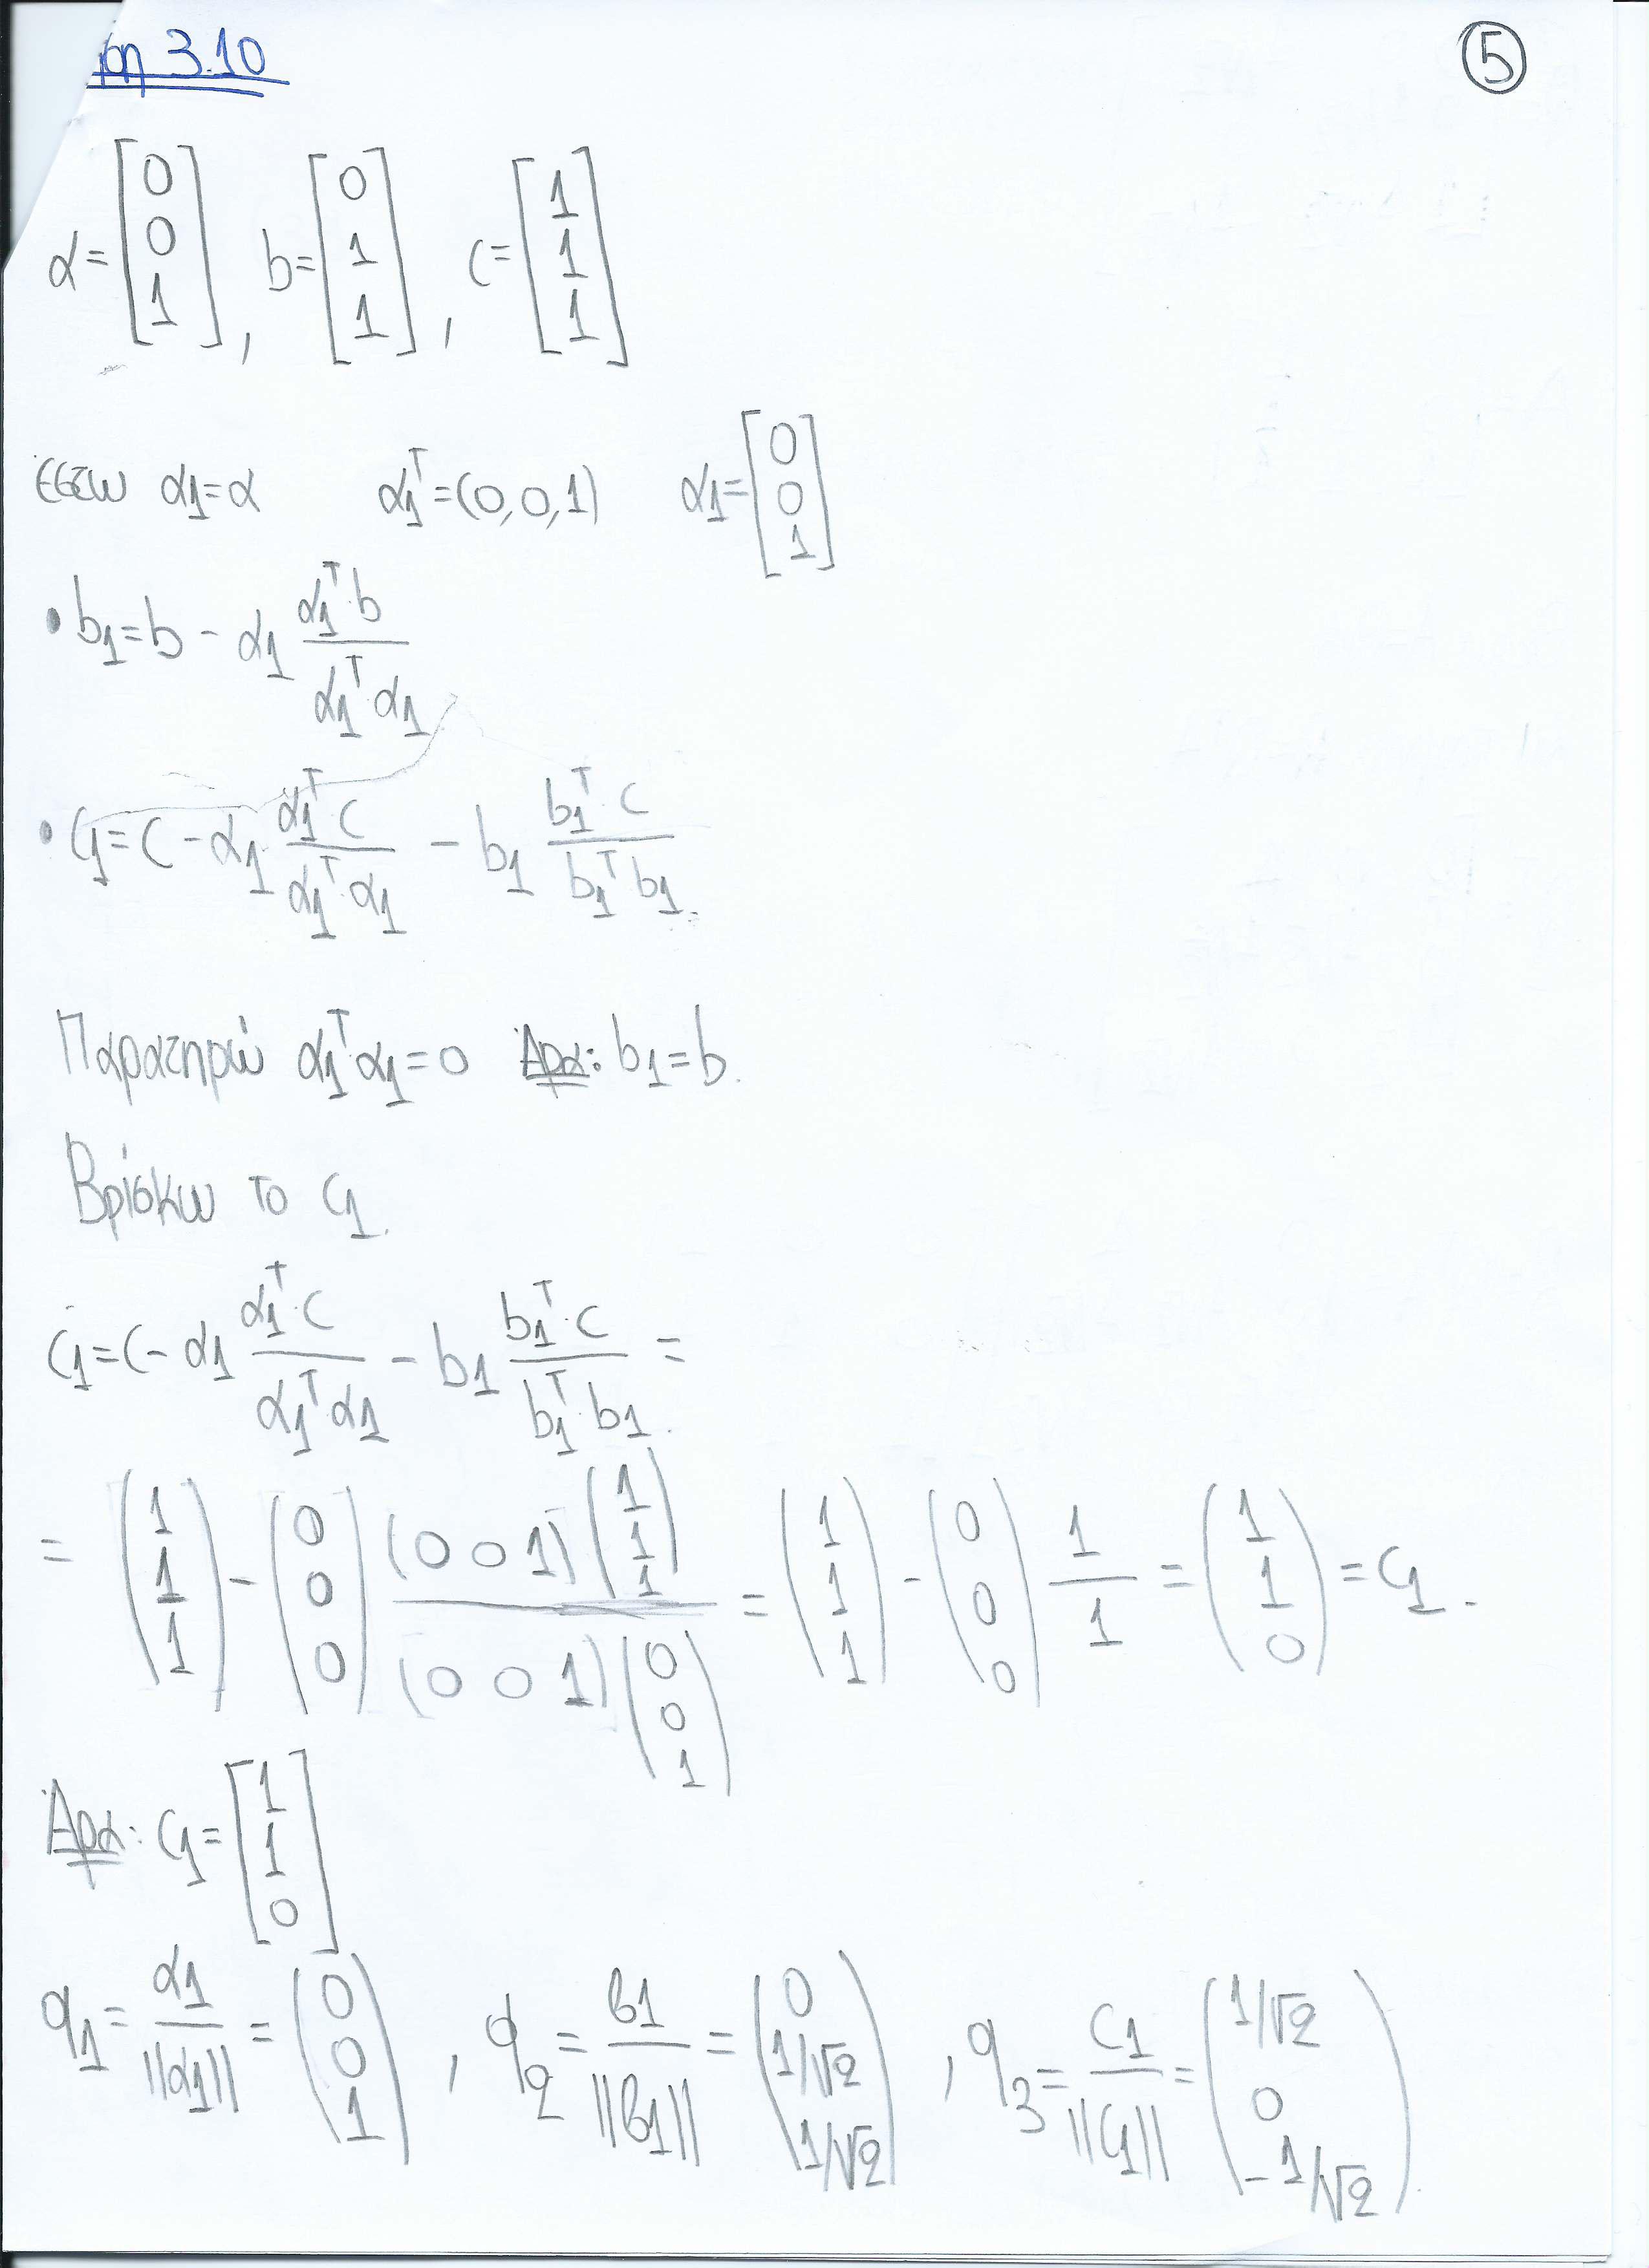 ση 3.10
⑤
α = [0 0 1], b = [0 1 1], c = [1 1 1]
εστω α1 = α   α1^T = (0, 0, 1)   α1 = [0 0 1]
• b1 = b - α1 (α1^T · b)/(α1^T · α1)
• c1 = c - α1 (α1^T · c)/(α1^T · α1) - b1 (b1^T · c)/(b1^T b1).
Παρατηρώ α1^T α1 = 0 Άρα: b1 = b.
Βρίσκω το c1.
c1 = c - α1 (α1^T · c)/(α1^T · α1) - b1 (b1^T · c)/(b1^T · b1) =
= (1 1 1) - (0 0 0) ((0 0 1)(1 1 1))/((0 0 1)(0 0 1)) = (1 1 1) - (0 0 0) 1/1 = (1 1 0) = c1.
Άρα: c1 = [1 1 0]
q1 = α1/||α1|| = (0 0 1), q2 = b1/||b1|| = (0 1/√2 1/√2), q3 = c1/||c1|| = (1/√2 0 -1/√2)